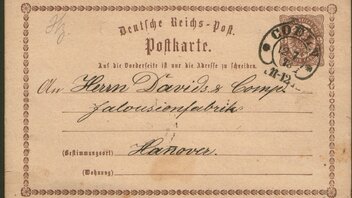 Deutsche Reichs-Post.
Postkarte.
Auf die Vorderseite ist nur die Adresse zu schreiben.
An Herrn Davids & Comp.
Jalousienfabrik
(Bestimmungsort) Hanover.
(Wohnung)